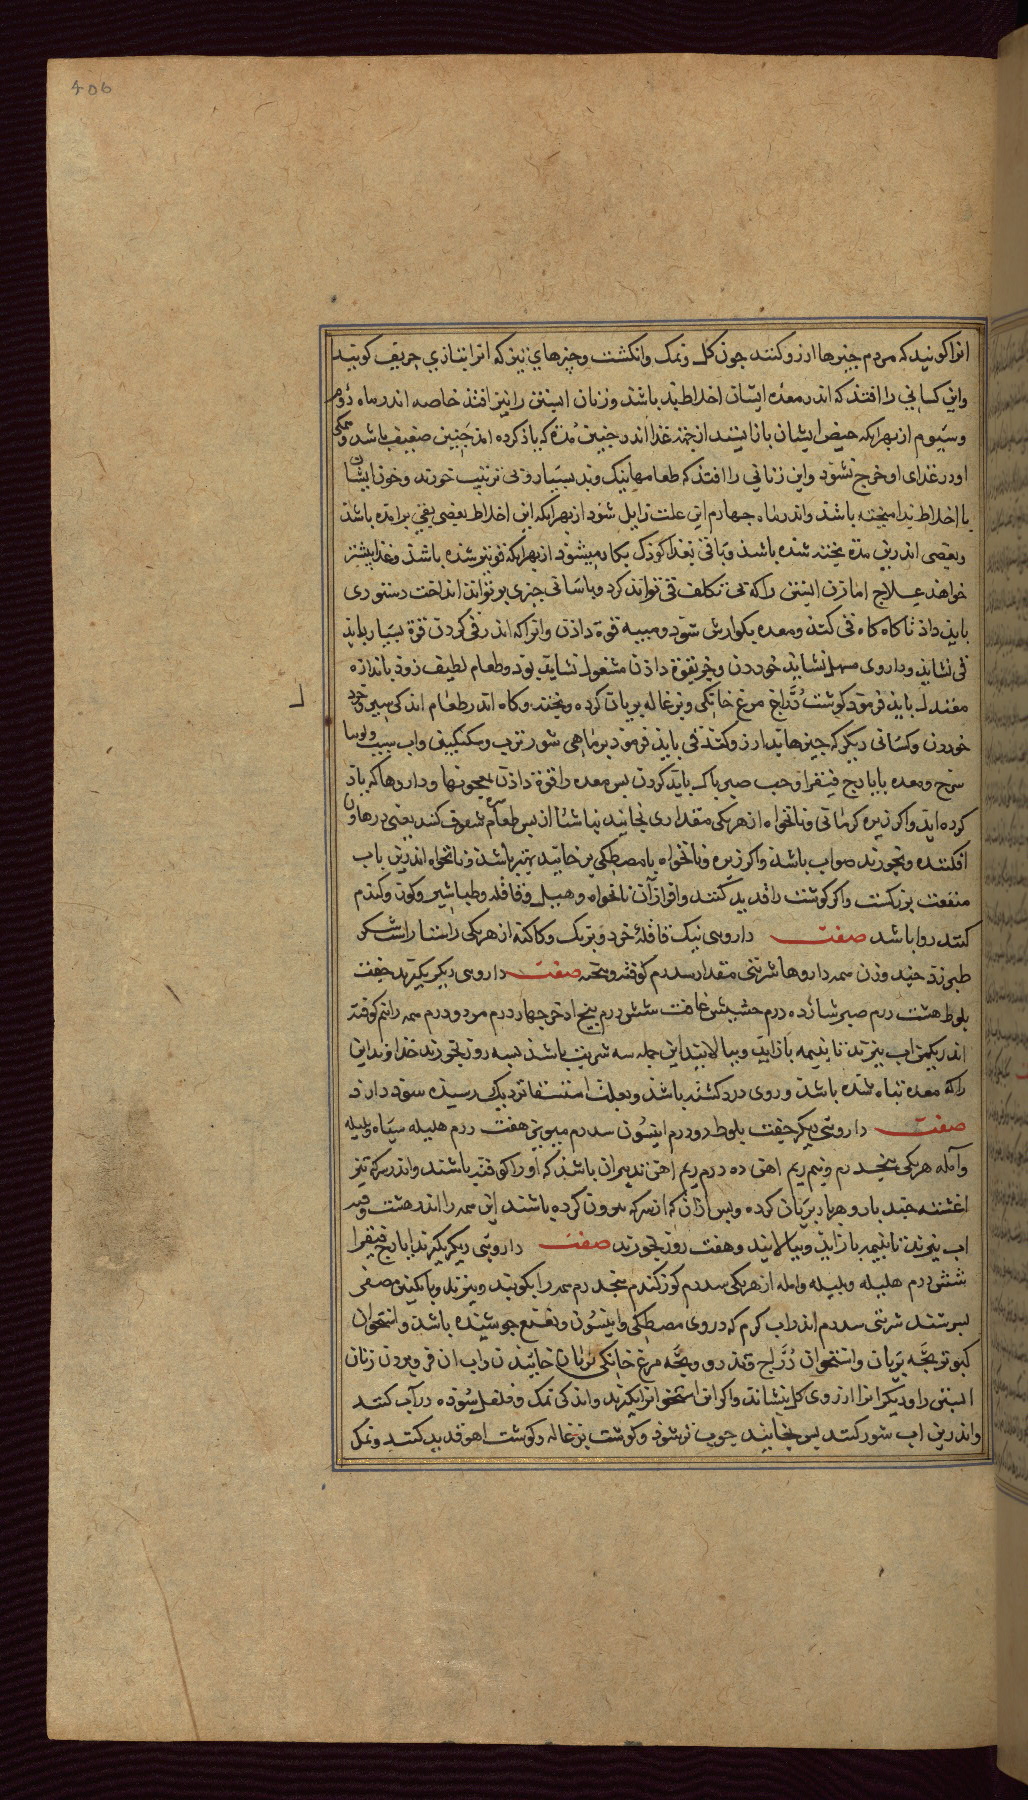 406
انرا کویند که مردم چیزها ارزو کنند چون کل و نمک و انکشت و چیزهای نیز که انرا بتازی حریف کویند
واین کسانی را افتد که اندر معده ایشان اخلاط بد باشد و زنان ابستن را نیز افتد خاصه اندر ماه دوم
و سیوم از بهر انکه حیض ایشان باز ایستد از جهة غذا اندر چنین مدة که یاذ کرده امد جنین ضعیف باشد و همکی
اودر غذای او خرج نشود واین زنانی را افتد که طعامهای نیک و بد بسیار و بی ترتیب خورند و خون ایشان
با اخلاط بد امیخته باشد و اندر ماه چهارم این علت زایل شود از بهر انکه این اخلاط بعضی بقی برامده باشد
و بعضی اندرین مدة پخته شده باشد و باقی بغذا کوذک بکار میشود از بهر انکه قوی تر شده باشد و غذا بیشتر
خواهد علاج اما زن ابستن را که بی تکلف قی تواند کرد و باسانی چیزی بر تواند انداخت دستوری
بایذ داذ تا کاه کاه قی کند و معده بکوارش شود و سپبه قوة داذن و انرا که اندر قی کردن قوة بسیار باید
قی نشاید و داروی مسهل نشاید خوردن و جز بقوة داذن مشغول نشاید بود و طعام لطیف زود باندازه
معتدل باید فرمود کوشت دراج مرغ خانکی و بزغاله بریان کرده و پخته و کاه اندر طعام اندکی سیر و خرد
خوردن و کسانی دیکر که چیزها بد ارزو کنند قی باید فرمود بر ماهی شور ترب و سکنکبین و اب شبت و لوبیا
سرخ و معده بایارج فیقرا و حب صبر پاک باید کردن پس معده را قوة داذن بمعجونها و داروها که یاد
کرده اید و اکر زیره کرمانی و نانخواه از هر یکی مقداری بخایند بناشتا از پس طعام سفوف کنند یعنی در دهان
افکنند و بخورند صواب باشد و اکر زیره و نانخواه با مصطکی بر خایند بهتر باشد و نانخواه اندرین باب
منفعت بزرکست و اکر کوشت را قدید کنند و افزار آن نانخواه و هیل و قاقله و طباشیر و کون و کندم
کنند روا باشد صفت داروی نیک قاقلهٔ خرد و بزرک و کاکنه از هر یکی راستا راست شکر
طبرزد چند وزن همه داروها شربتی مقدار سه درم کوفته و بیخته صفت داروی دیکر بکیرند جفت
بلوط هشت درم صبر شانزده درم حشیش غافت شش درم بیخ اذخر چهار درم مر دو درم همه را نیم کوفته
اندر یکمن اب بپزند تا بنیمه باز اید و بپالایند این جمله سه شربت باشد بسه روز بخورند خداوند این
را که معده تباه شده باشد و روی درد کشنده باشد و بعلت استسقا نزدیک رسیده سود دارد
صفت داروئی دیکر جفت بلوط دو درم انیسون سه درم میویز هفت درم هلیله سیاه و بلیله
و آمله هر یکی پنجدرم و نیم ریم اهن ده درم ریم اهن تدبیر آن باشد که او را کوفته باشند و اندر سرکه تیز
اغشته چند بار و هر بار بریان کرده و پس از آن که از سرکه بیرون کرده باشند این همه را اندر هشت وقیه
اب بپزند تا بنیمه باز اید و بپالایند و هفت روز بخورند صفت داروئی دیکر بکیرند ایارج فیقرا
شش درم هلیله و بلیله و امله از هر یکی سه درم کوز کندم پنجدرم همه را بکوبند و ببیزند و بانکبین مصفی
بسرشند شربتی سه درم اندر اب کرم که در وی مصطکی و انیسون و نعنع جوشیده باشد و استخوان
کبوتر بچه بریان و استخوان دراج و تذرو و بچه مرغ خانکی بریان خاییدن و اب ان فرو بردن زنان
ابستن را و دیکر انرا ارزوی کل بنشاند و اکر این استخوانها بکیرند و اندکی نمک و فلفل سوده در آب کنند
و اندرین اب شور کنند پس بخایند خوب تر شود و کوشت بزغاله و کوشت اهو قدید کنند و نمک